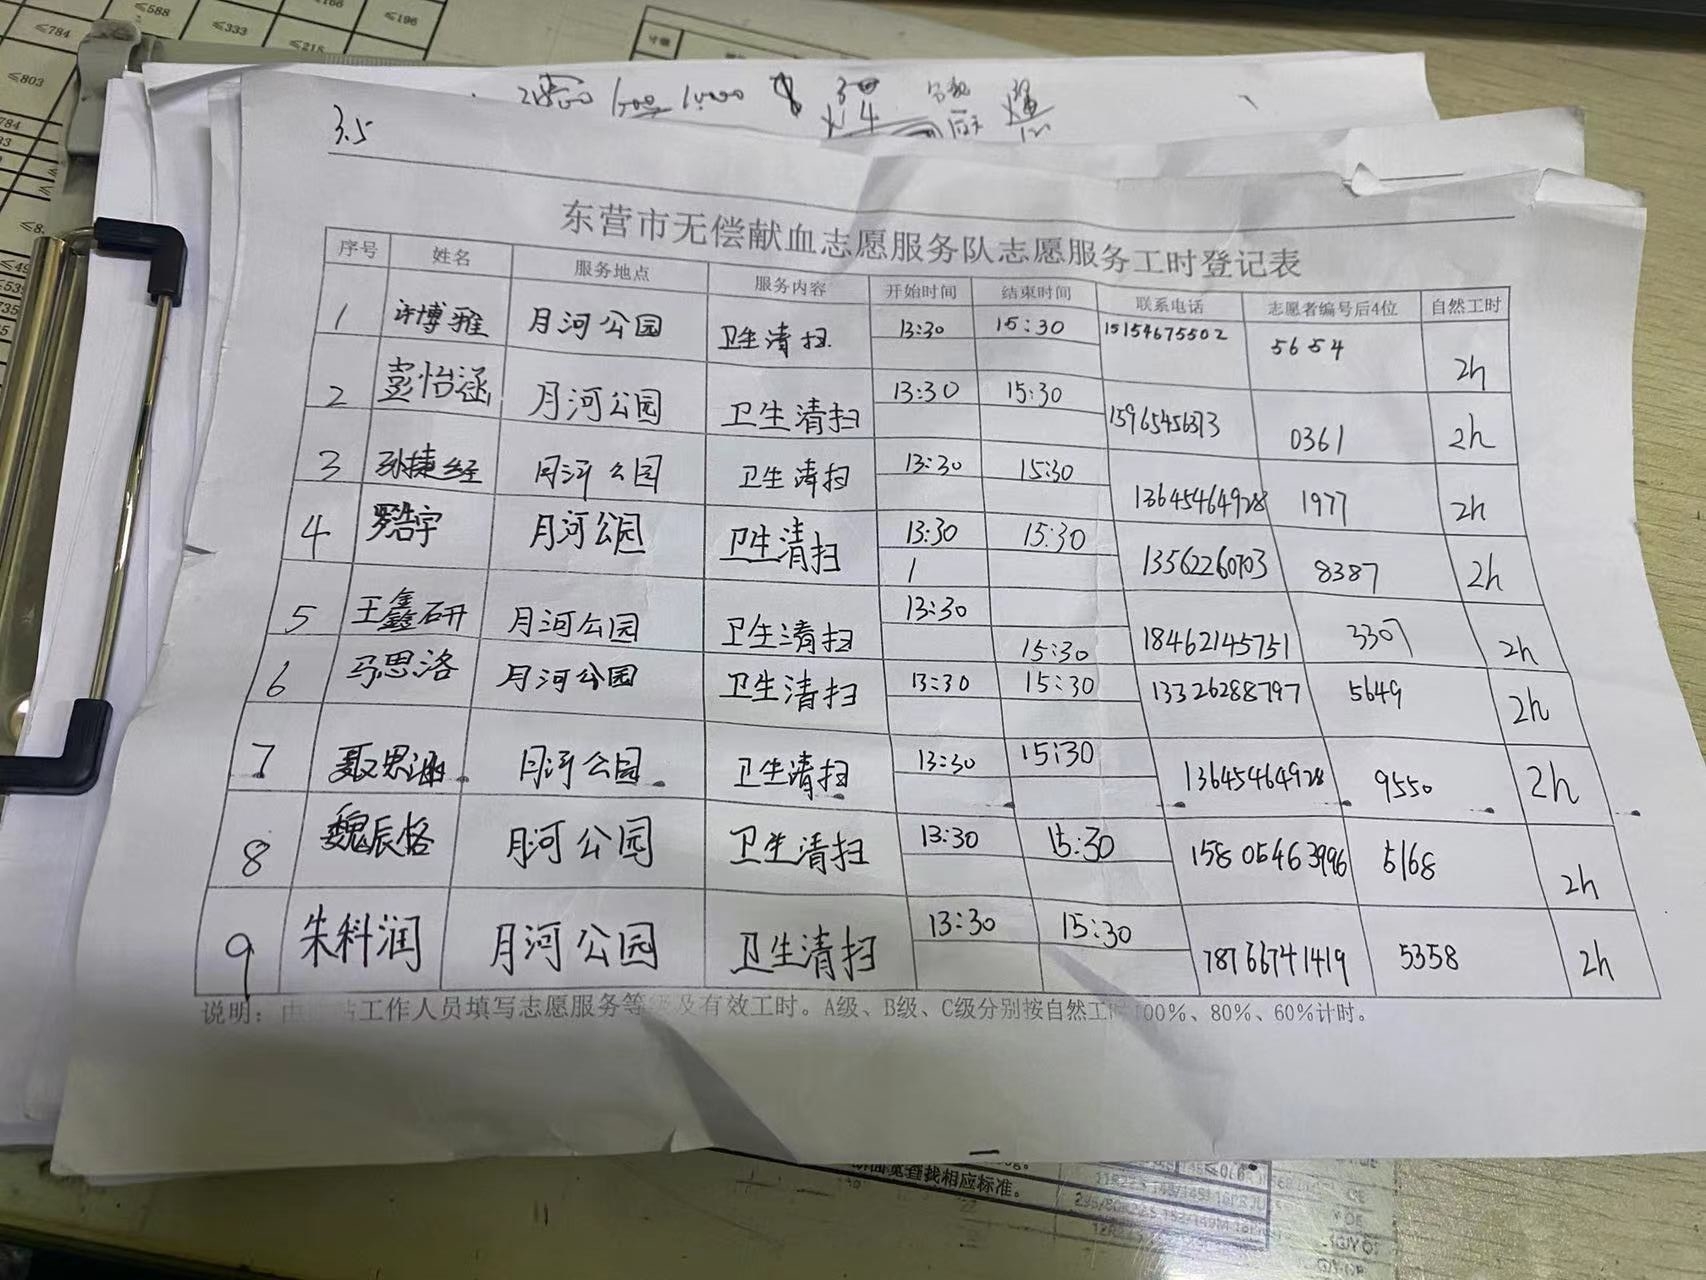 ≤588
≤166
≤196
≤784
≤333
≤218
≤803
3.5
东营市无偿献血志愿服务队志愿服务工时登记表
序号 姓名 服务地点 服务内容 开始时间 结束时间 联系电话 志愿者编号后4位 自然工时
1 许博雅 月河公园 卫生清扫 13:30 15:30 15154675502 5654 2h
2 彭怡涵 月河公园 卫生清扫 13:30 15:30 0361 2h
3 孙捷经 月河公园 卫生清扫 13:30 15:30 13645464928 1977 2h
4 罗浩宇 月河公园 卫生清扫 13:30 15:30 13562260703 8387 2h
1
5 王鑫研 月河公园 卫生清扫 13:30 15:30 18462145751 3307 2h
6 马思洛 月河公园 卫生清扫 13:30 15:30 13326288797 5649 2h
7 聂思涵 月河公园 卫生清扫 13:30 15:30 13645464928 9550 2h
8 魏辰格 月河公园 卫生清扫 13:30 15:30 15805463996 5168 2h
9 朱科润 月河公园 卫生清扫 13:30 15:30 18766741419 5358 2h
说明：由 工作人员填写志愿服务等级及有效工时。A级、B级、C级分别按自然工时100%、80%、60%计时。
查找相应标准。